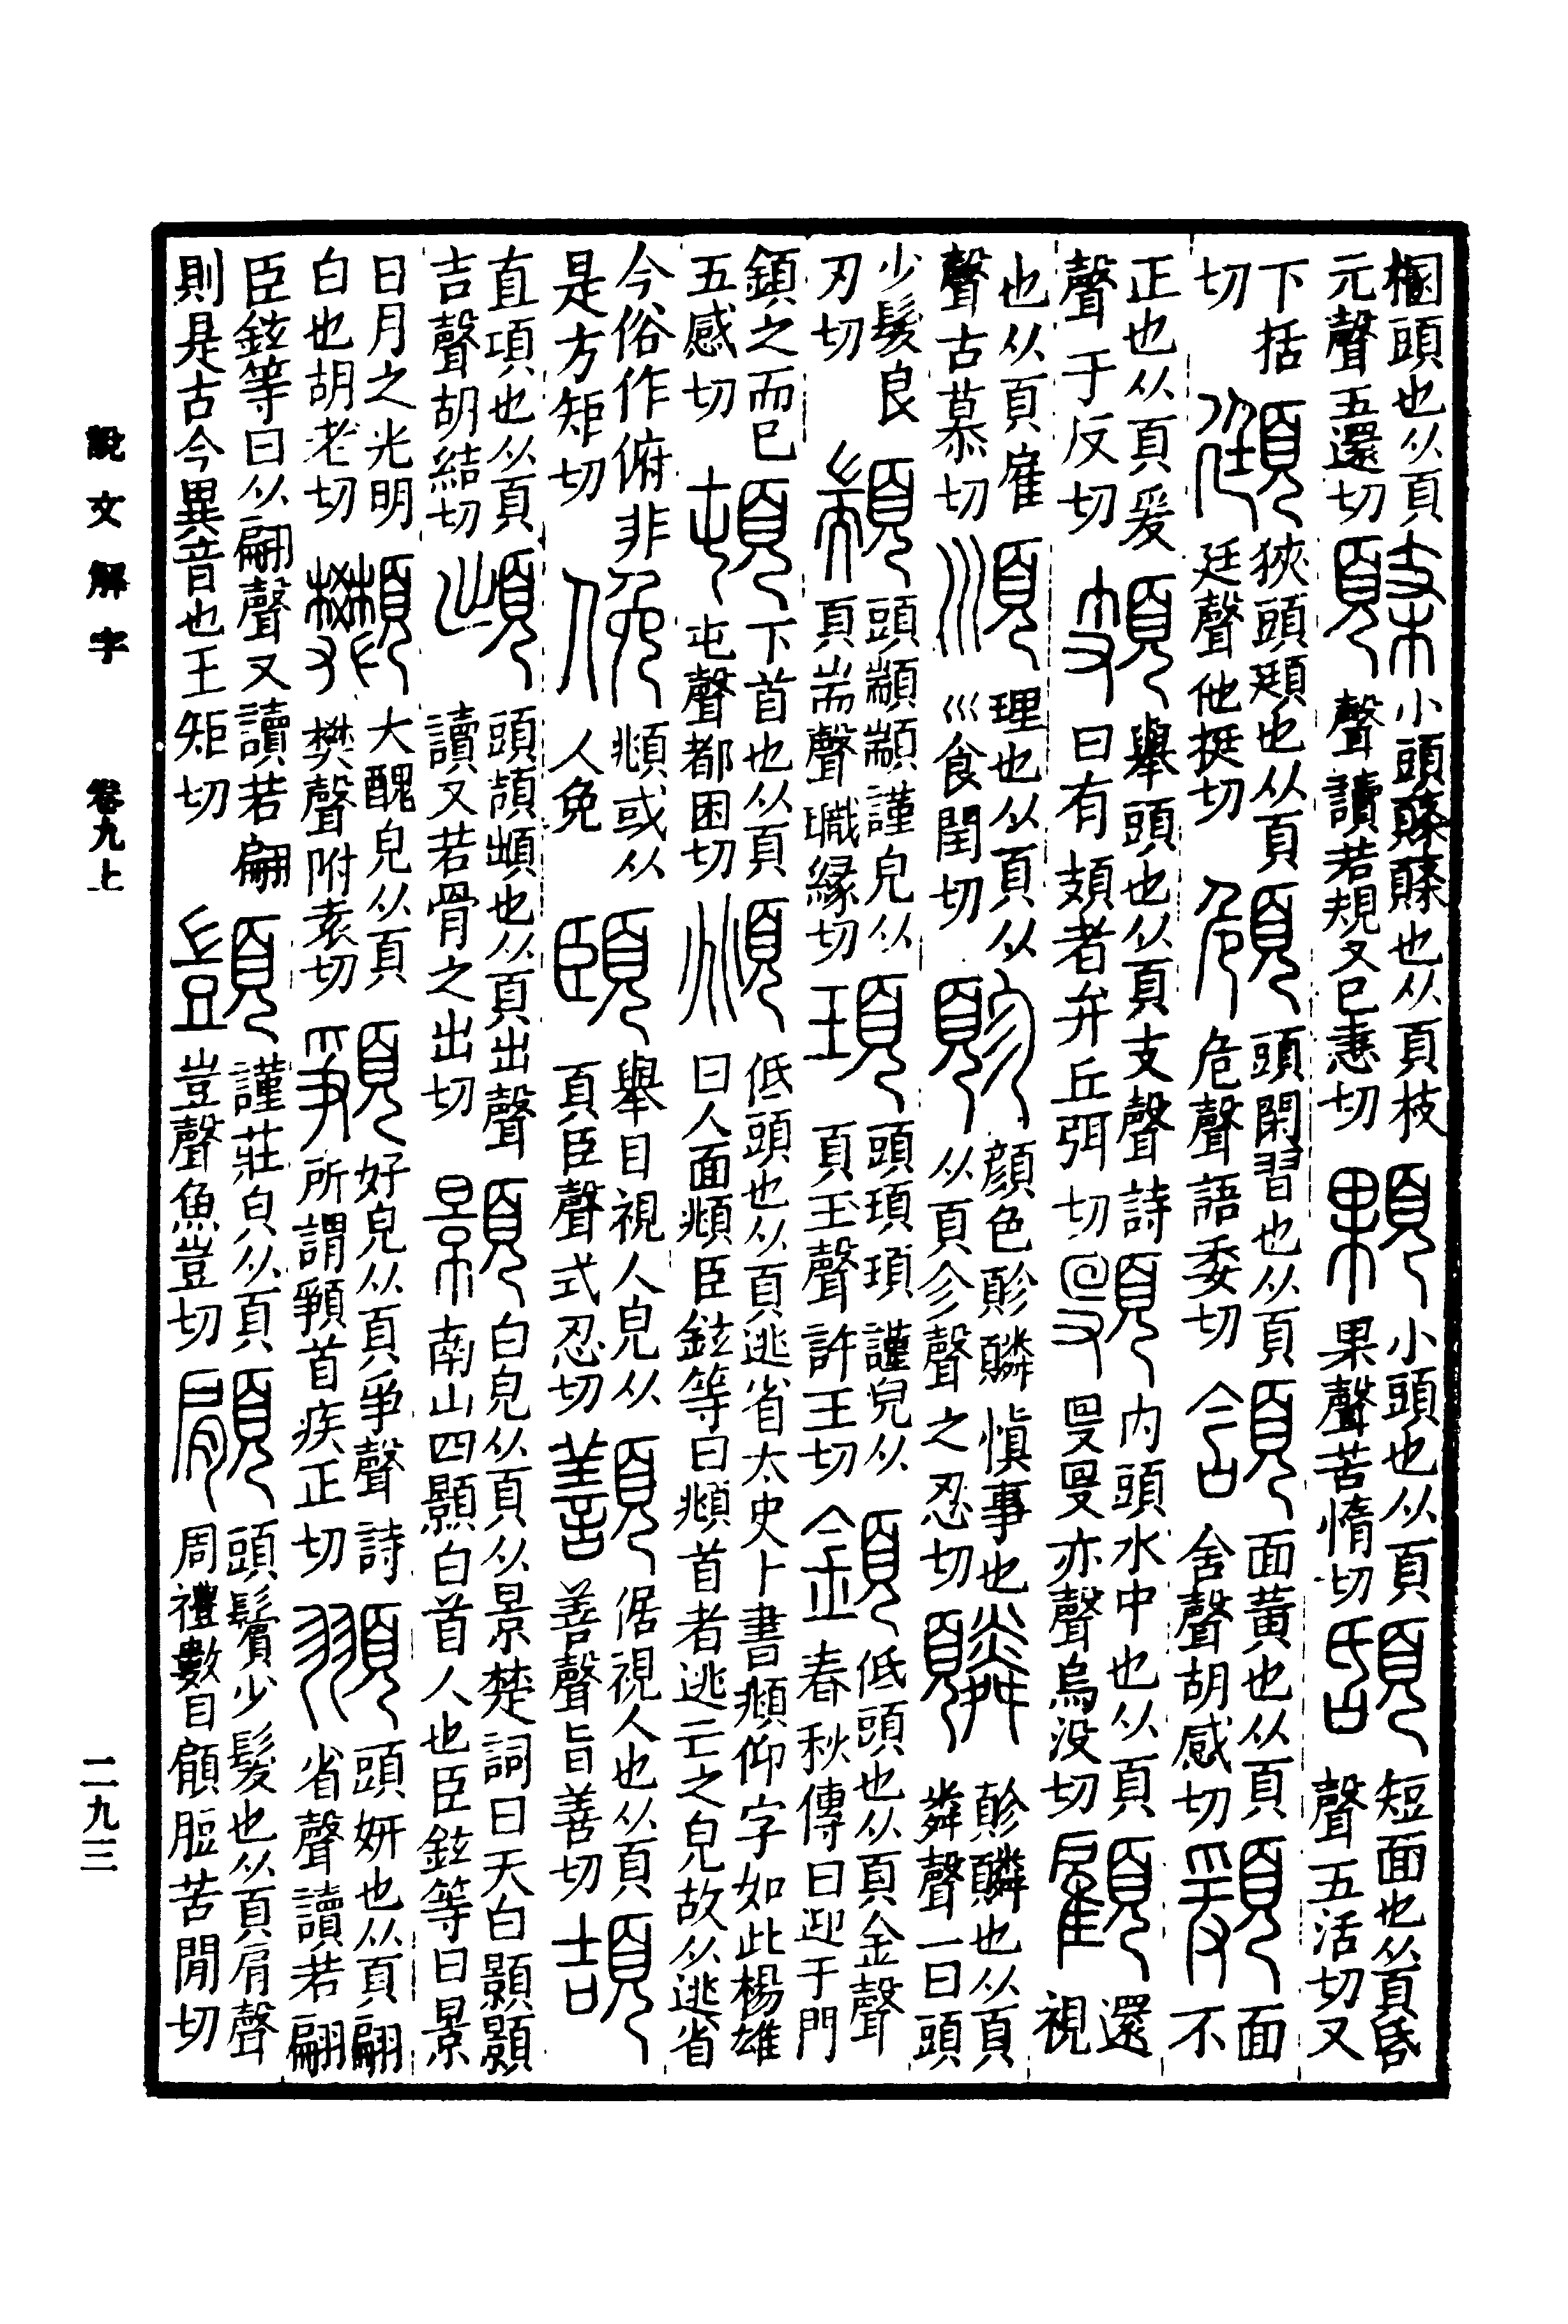 梱頭也从頁
元聲五還切
䫌
小頭䫌䫌也从頁枝
聲讀若規又己恚切
顆
小頭也从頁
果聲苦惰切
短面也从頁昏
聲五活切又
下括
切
頲
狹頭頲也从頁
廷聲他挺切
頠
頭閑習也从頁
危聲語委切
頷
面黃也从頁
含聲胡感切
面
不
正也从頁爰
聲于反切
頍
舉頭也从頁支聲詩
曰有頍者弁丘弭切
内頭水中也从頁
𠬛𠬛亦聲烏没切
顧
還
視
也从頁雇
聲古慕切
順
理也从頁从
巛食閏切
䪾
顏色䪾䫰愼事也
从頁㐱聲之忍切
䫰
䪾䫰也从頁
粦聲一曰頭
少髮良
刃切
顓
頭顓顓謹皃从
頁耑聲職緣切
頊
頭頊頊謹皃从
頁玉聲許玉切
顉
低頭也从頁金聲
春秋傳曰迎于門
鎮之而已
五感切
頓
下首也从頁
屯聲都困切
頫
低頭也从頁逃省太史卜書頫仰字如此楊雄
曰人面頫臣鉉等曰頫首者逃亡之皃故从逃省
今俗作俯非
是方矩切
俛
頫或从
人免
頤
舉目視人皃从
頁臣聲式忍切
倨視人也从頁
善聲旨善切
頡
直項也从頁
吉聲胡結切
䪼
頭頡䪼也从頁出聲
讀又若骨之出切
顥
白皃从頁从景楚詞曰天白顥顥
南山四顥白首人也臣鉉等曰景
日月之光明
白也胡老切
大醜皃从頁
樊聲附袁切
𩓞
好皃从頁爭聲詩
所謂𩓞首疾正切
頭妍也从頁翩
省聲讀若翩
臣鉉等曰从翩聲又讀若翩
則是古今異音也王矩切
顗
謹莊皃从頁
豈聲魚豈切
顅
頭鬢少髮也从頁肩聲
周禮數目顅脰苦閒切
說文解字 卷九上 二九三